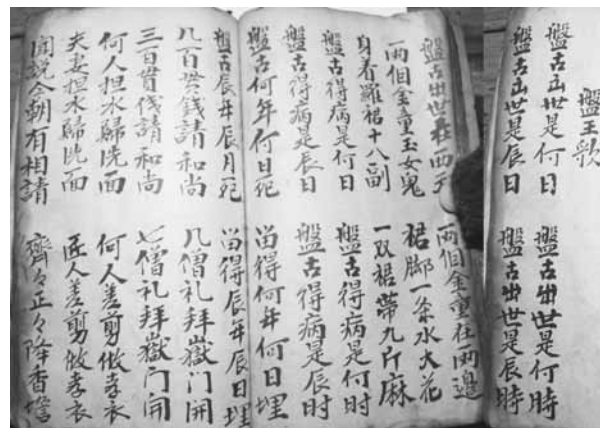 盤王歌
盤古出世是何日 盤古出世是何時
盤古出世是辰日 盤古出世是辰時
盤古出世在西天 兩個金童在兩邊
兩個金童玉女兒 裙腳一条水大花
身着羅裙十八副 一双裙帶九斤麻
盤古得病是何日 盤古得病是何時
盤古得病是辰日 盤古得病是辰時
盤古何年何日死 当得何年何日埋
盤古辰年辰月死 当得辰年辰日埋
几百貫錢請和尚 几僧礼拜嶽门開
三百貫伐請和尚 七僧礼拜嶽门開
何人担水歸洗面 何人差剪做孝衣
夫妻担水歸洗面 匠人差剪做孝衣
聞説今朝有相請 齊々正々降香壇